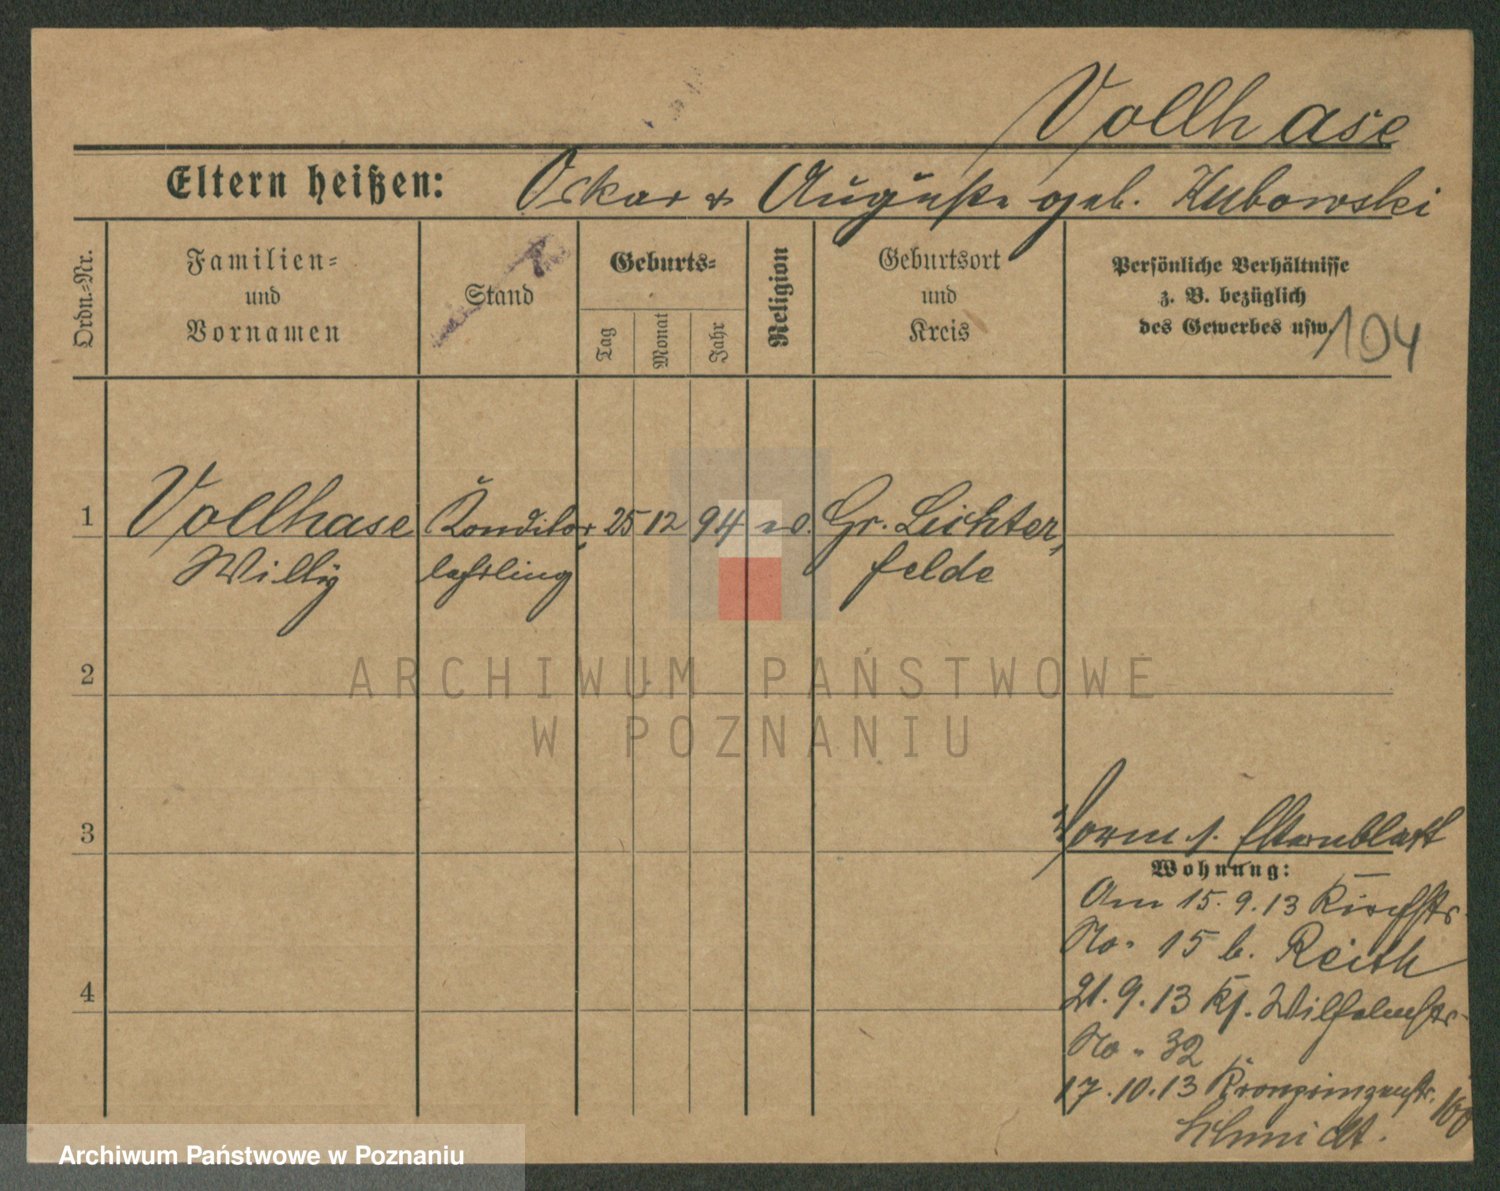 Vollhase
Eltern heißen: Oskar & Auguste geb. Kubowski
Ordn.-Nr.
Familien-
und
Vornamen
Stand
Geburts-
Tag
Monat
Jahr
Religion
Geburtsort
und
Kreis
Persönliche Verhältnisse
z. B. bezüglich
des Gewerbes usw.
104
1 Vollhase Konditor 25 12 94 ev. Gr. Lichter
Willy lehrling felde
2
ARCHIWUM PAŃSTWOWE
W POZNANIU
3
s. Elternblatt
Wohnung:
Am 15.9.13 Kirchstr.
No. 15 b. Reith
4
21.9.13 Ks. Wilhelmstr.
No. 32
17.10.13 Kronprinzenstr. 100
Schmidt.
Archiwum Państwowe w Poznaniu